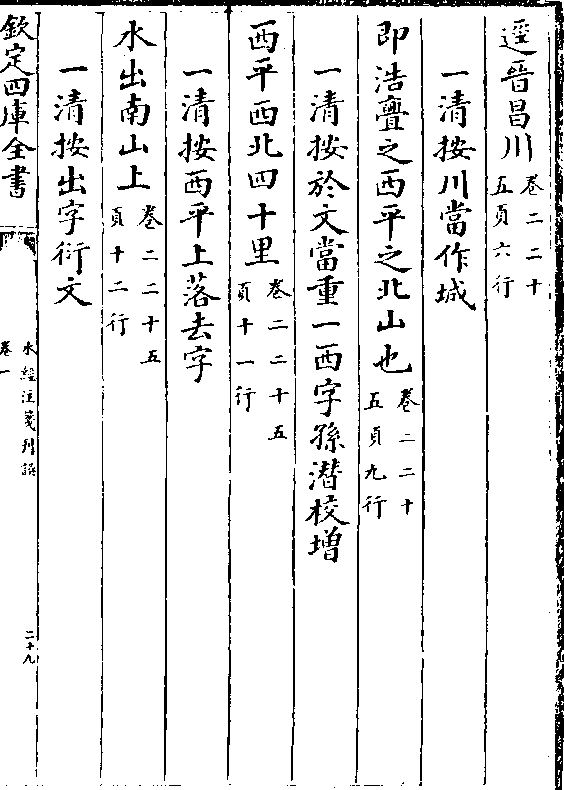 逕晉昌川卷二二十五頁六行
一清按川當作城
即浩亹之西平之北山也卷二二十五頁九行
一清按於文當重一西字孫潛校增
西平西北四十里卷二二十五頁十一行
一清按西平上落去字
水出南山上卷二二十五頁十二行
一清按出字衍文
欽定四庫全書
水經注箋刊誤
卷一
二十九